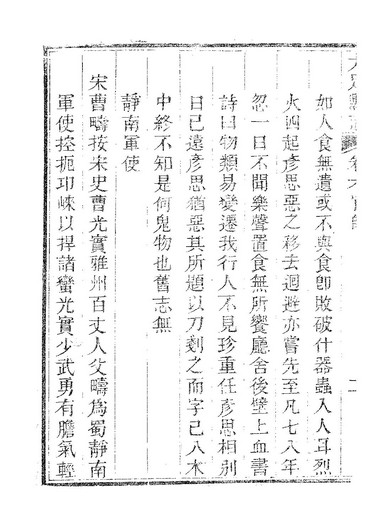 如人食無遺或不與食卽敗破什器蟲入人耳烈
火四起彥思惡之移去迴避亦嘗先至凡七八年
忽一日不聞樂聲置食無所饗廳舍後壁上血書
詩曰物類易變遷我行人不見珍重任彥思相別
日已遠彥思猶惡其所題以刀剗之而字已入木
中終不知是何鬼物也舊志無
靜南軍使
宋曹疇按宋史曹光實雅州百丈人父疇爲蜀靜南
軍使控扼邛崍以捍諸蠻光實少武勇有膽氣輕